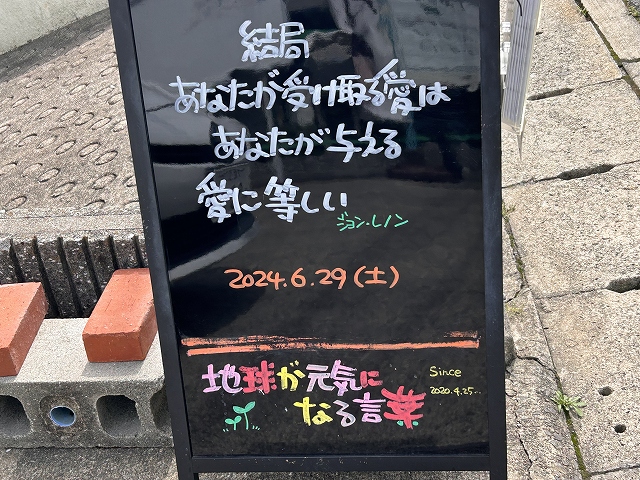 結局
あなたが受け取る愛は
あなたが与える
愛に等しい
ジョン・レノン
2024.6.29(土)
地球が元気に
なる言葉
Since
2020.4.25...